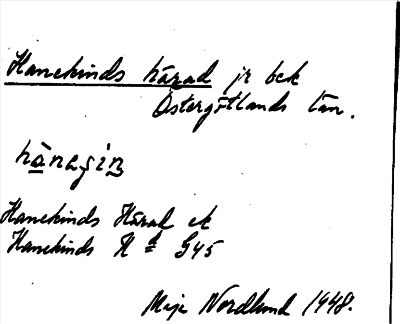 Hanekinds härad jr bck
Östergötlands län.
hànɛçin
Hanekinds Härad ek
Hanekinds H = G45
Maja Nordlund 1948.